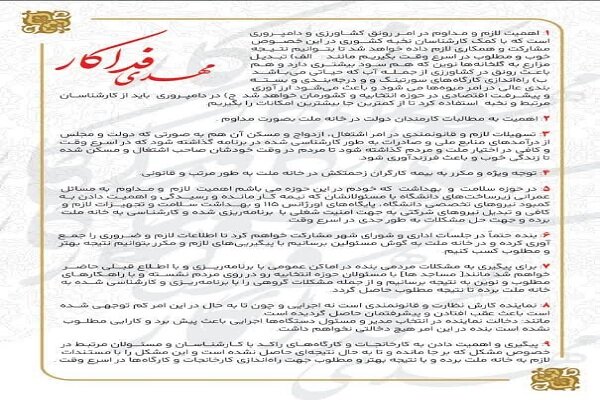 مهدی فداکار
۱. اهمیت لازم و مداوم در امر رونق کشاورزی و دامپروری
است که با کمک کارشناسان نخبه کشوری در این خصوص
مشارکت و همکاری لازم داده خواهد شد تا بتوانیم نتیجه
خوب و مطلوب در اسرع وقت بگیریم مانند الف) تبدیل
مزارع به گلخانه‌ها نوین که هم سود بیشتری دارد و هم
باعث رونق در کشاورزی از جمله آب که حیاتی می‌باشد
ب) راه‌اندازی کارگاه‌های سورتینگ و و درجه‌بندی و بسته
بندی عالی در امر میوه‌ها می شود و باعث می‌شود ارز آوری
و پیشرفت اقتصادی در حوزه انتخابیه و کشورمان خواهد شد ج) در دامپروری باید از کارشناسان
مرتبط و نخبه استفاده کرد تا از کمترین جا بیشترین امکانات را بگیریم
۲. اهمیت به مطالبات کارمندان دولت در خانه ملت بصورت مداوم .
۳. تسهیلات لازم و قانونمندی در امر اشتغال، ازدواج و مسکن آن هم به صورتی که دولت و مجلس
از درآمدهای منابع ملی و صادرات به طور کارشناسی شده در برنامه گذاشته شود که در اسرع وقت
و کافی در اختیار ملت و مردم گذاشته شود تا مردم در وقت خودشان صاحب اشتغال و مسکن شده
تا زندگی خوب و باعث فرزندآوری شود.
۴. توجه ویژه و مکرر به بیمه کارگران زحمتکش در خانه ملت به طور مرتب و قانونی.
۵ در حوزه سلامت و بهداشت که خودم در این حوزه می باشم اهمیت لازم و مداوم به مسائل
عمرانی زیرساخت‌های دانشگاه با مسئولانشان که نیمه کار مانده و رسیدگی و اهمیت دادن به
کمبود نیروهای تخصصی دانشگاه، پایگاه‌های اورژانس ۱۱۵ و بهداشت سلامت و تجهیزات لازم و
کافی و تبدیل نیروهای شرکتی به جهت امنیت شغلی با برنامه‌ریزی شده و کارشناسی به خانه ملت
برده و جهت حل مشکلات به طور جدی در اسرع وقت.
۶. بنده حتماً در جلسات اداری و شورای شهر مشارکت خواهم کرد تا اطلاعات لازم و ضروری را جمع
آوری کرده و در خانه ملت به گوش مسئولین برسانیم با پیگیریی‌های لازم و مکرر بتوانیم نتیجه بهتر
و مطلوب کسب کنیم.
۷. برای پیگیری به مشکلات مردمی بنده در اماکن عمومی با برنامه‌ریزی و با اطلاع قبلی حاضر
خواهم شد مانند( مساجد ها) با مسئولان حوزه انتخابیه رو در روی مردم نشسته و با راهکارهای
مطلوب و نوین به نتیجه برسانیم و از جمله مشکلات گروهی را با برنامه‌ریزی و کارشناسی شده به
خانه ملت برده تا نتیجه مطلوب حاصل گردد.
۸. نماینده کارش نظارت و قانونمندی است نه اجرایی و چون تا به حال در این امر کم توجهی شده
است باعث عقب افتادن و پیشرفتمان حاصل گردیده است
مانند: دخالت نماینده در انتخاب مدیر و مسئول دستگاه‌ها اجرایی باعث پیش برد و کارایی مطلوب
نشده است بنده در این امر هیچ دخالتی نخواهم داشت.
۹. پیگیری و اهمیت دادن به کارخانجات و کارگاه‌های راکد با کارشناسان و مسئولان مرتبط در
خصوص مشکل که بر جا مانده و تا به حال نتیجه‌ای حاصل نشده است و این مشکل را با مستندات
لازم به خانه ملت برده و با نتیجه بهتر و مطلوب جهت راه‌اندازی کارخانجات و کارگاه‌ها در اسرع وقت